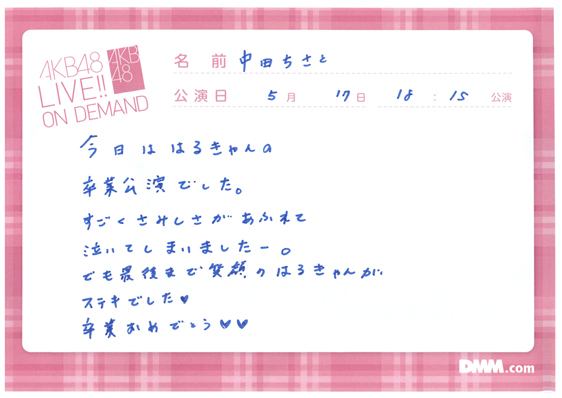 AKB48
LIVE!!
ON DEMAND
AKB
48
名前 中田ちさと
公演日 5月 17日 18:15 公演
今日は はるきゃんの
卒業公演でした。
すごくさみしさがあふれて
泣いてしまいましたー。
でも最後まで笑顔のはるきゃんが
ステキでした♥
卒業おめでとう♥♥
DMM.com